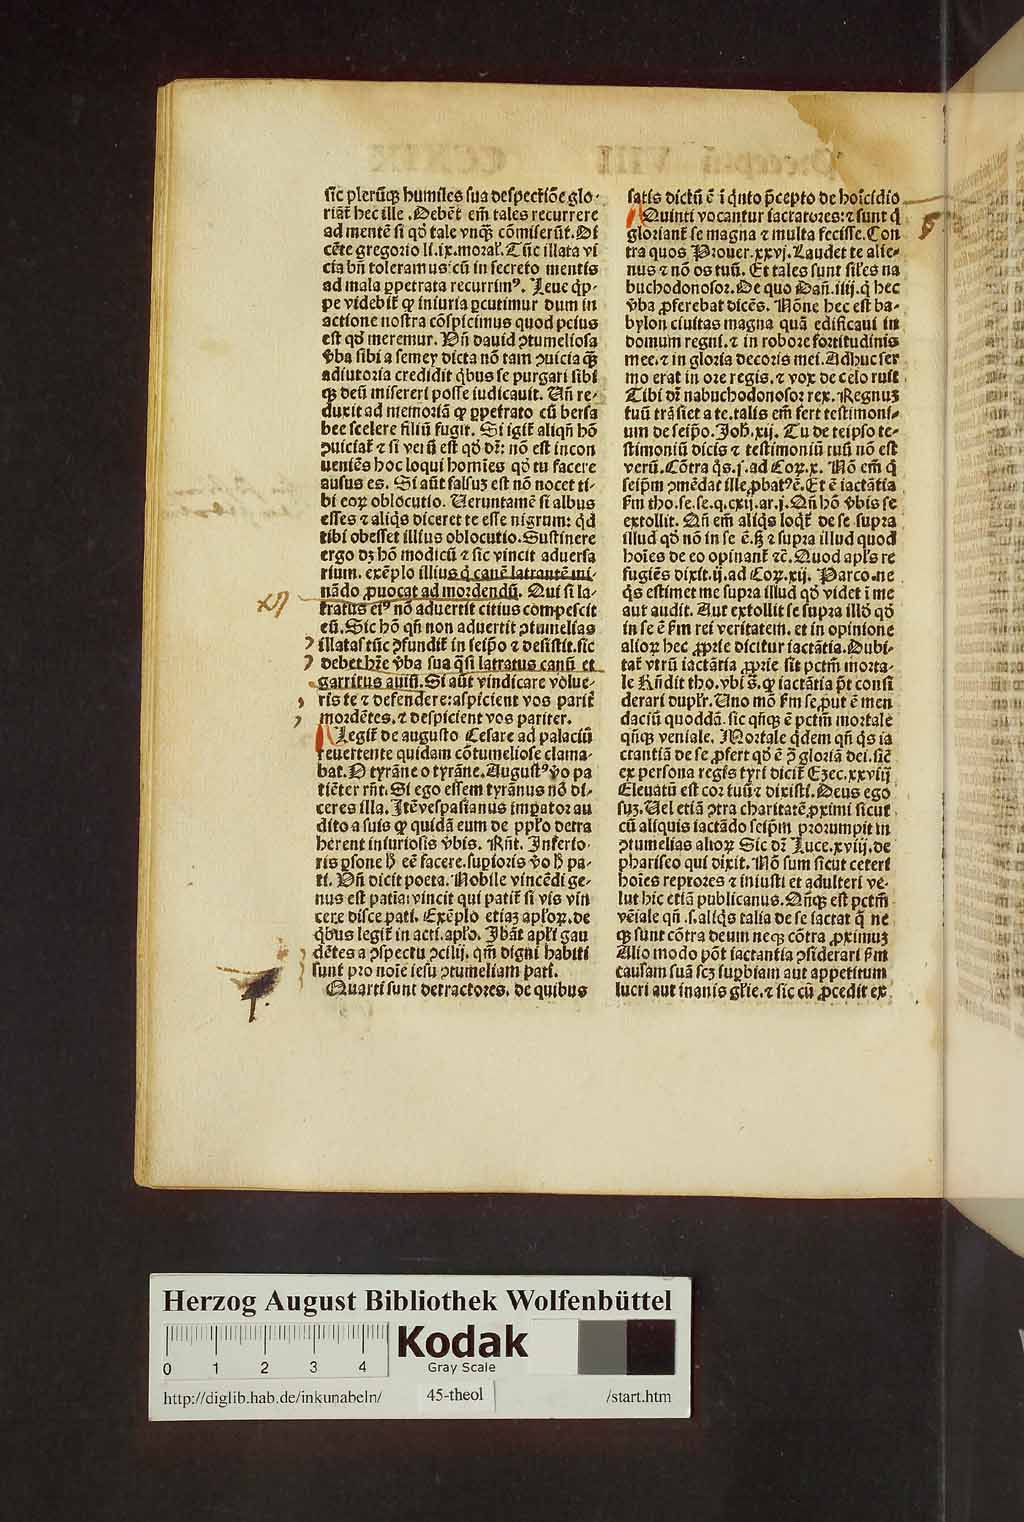 sic plerūqꝫ humiles sua despectiōe glo-
riāt᷑ hec ille. Debēt em̄ tales recurrere
ad mentē si qd̄ tale vnqꝫ cōmiserūt. Di
cēte gregorio li.ix.moral᷑. Tūc illata vi
cia bn̄ toleramus cū in secreto mentis
ad mala ꝑpetrata recurrimꝰ. Leue qͥp-
pe videbit᷑ ꝙ iniuria ꝑcutimur dum in
actione nostra cōspicimus quod peius
est qd̄ meremur. Un̄ dauid ꝯtumeliosa
v̄ba sibi a semey dicta nō tam ꝯuicia qꝫ
adiutoria credidit qͥbus se purgari sibi
qꝫ deū misereri posse iudicauit. Un̄ re-
duxit ad memoriā ꝙ ꝑpetrato cū bersa
bee scelere filiū fugit. Si igit᷑ aliqn̄ hō
ꝯuiciat᷑ ⁊ si verū est qd̄ dr̄: nō est incon
ueniēs hoc loqui homīes qd̄ tu facere
ausus es. Si aūt falsuꝫ est nō nocet ti-
bi eoꝝ oblocutio. Ueruntamē si albus
esses ⁊ aliqͥs diceret te esse nigrum: qͥd
tibi obesset illius oblocutio. Sustinere
ergo dꝫ hō modicū ⁊ sic vincit aduersa
rium. exēplo illius qͥ canē latrantē mi-
nādo ꝓuocat ad mordendū. Qui si la-
tratus eiꝰ nō aduertit citius compescit
eū. Sic hō qn̄ non aduertit ꝯtumelias
illatas tūc ꝯfundit᷑ in seip̄o ⁊ desistit. sic
debet hr̄e v̄ba sua qͣsi latratus canū et
garritus auiū. Si aūt vindicare volue-
ris te ⁊ defendere: aspicient vos parit᷑
mordētes. ⁊ despicient vos pariter.
Legit᷑ de augusto Cesare ad palaciū
reuertente quidam cōtumeliose clama-
bat. O tyrāne o tyrāne. Augustꝰ v̄o pa
tiēter rn̄t. Si ego essem tyrānus nō di-
ceres illa. Itē vespasianus imꝑator au
dito a suis ꝙ quidā eum de ppl᷑o detra
herent iniuriosis v̄bis. Rn̄t. Inferio-
ris ꝑsone h̄ eē facere. suꝑioris v̄o h̄ pa-
ti. Un̄ dicit poeta. Nobile vincēdi ge-
nus est patīa: vincit qui patit᷑ si vis vin
cere disce pati. Exēplo etiaꝫ apl᷑oꝝ. de
qͥbus legit᷑ in acti. apl᷑o. Ibāt apl᷑i gau
dētes a ꝯspectu ꝯcilij. qm̄ digni habiti
sunt pro noīe iesu ꝯtumeliam pati.
Quarti sunt detractores. de quibus
satis dictū ē ī qͥnto p̄cepto de hoīcidio
Quinti vocantur iactatores: ⁊ sunt qͥ
gloriant᷑ se magna ⁊ multa fecisse. Con
tra quos Prouer.xxvj. Laudet te alie-
nus ⁊ nō os tuū. Et tales sunt sil᷑es na
buchodonosor. De quo Dan̄.iiij. qͥ hec
v̄ba ꝓferebat dicēs. Nōne hec est ba-
bylon ciuitas magna quā edificaui in
domum regni. ⁊ in robore fortitudinis
mee. ⁊ in gloria decoris mei. Adhuc ser
mo erat in ore regis. ⁊ vox de celo ruit
Tibi dr̄ nabuchodonosor rex. Regnuꝫ
tuū trāsiet a te. talis em̄ fert testimoni-
um de seip̄o. Joh̄.xij. Tu de teipso te-
stimoniū dicis ⁊ testimoniū tuū nō est
verū. Cōtra qͦs.j.ad Coꝝ.x. Nō em̄ qͥ
seip̄m ꝯmēdat ille ꝓbatꝰē. Et ē iactātia
ẜm tho.se.se.q.cxij.ar.j. Qn̄ hō v̄bis se
extollit. Qn̄ em̄ aliqͥs loqͥt᷑ de se supra
illud qd̄ nō in se ē. ꝫ ⁊ supra illud quod
hoīes de eo opinant᷑ ⁊c̄. Quod apl᷑s re
fugiēs dixit.ij.ad Coꝝ.xij. Parco. ne
qͥs estimet me supra illud qd̄ videt ī me
aut audit. Aut extollit se supra illd̄ qd̄
in se ē ẜm rei veritatem. et in opinione
alioꝝ hec ꝓprie dicitur iactātia. Dubi-
tat᷑ vtrū iactātia ꝓprie sit pctm̄ morta-
le Rn̄dit tho. vbi s̄. ꝙ iactātia pōt consi
derari dupl᷑r. Uno mō ẜm se, put ē men
daciū quoddā. sic qn̄qꝫ ē pctm̄ mortale
qn̄qꝫ veniale. Mortale qͥdem qn̄ qͥs ia
ctantiā de se ꝓfert qd̄ ē ꝯ̄ gloriā dei. sic̄
ex persona regis tyri dicit᷑ Ezec.xxviij
Eleuatū est cor tuū ⁊ dixisti. Deus ego
suꝫ. Uel etiā ꝯtra charitatē ꝓximi sicut
cū aliquis iactādo seip̄m prorumpit in
ꝯtumelias alioꝝ Sic dr̄ Luce.xviij. de
phariseo qui dixit. Nō sum sicut ceteri
hoīes raptores ⁊ iniusti et adulteri ve-
lut hic etiā publicanus. Qn̄qꝫ est pctm̄
vēiale qn̄.s.aliqͥs talia de se iactat qͥ ne
qꝫ sunt cōtra deum neqꝫ cōtra ꝓximuꝫ
Alio modo pōt iactantia ꝯsiderari ẜm
causam suā scꝫ suꝑbiam aut appetitum
lucri aut inanis gl᷑ie. ⁊ sic cū ꝓcedit ex
Herzog August Bibliothek Wolfenbüttel
0 1 2 3 4
Kodak
Gray Scale
http://diglib.hab.de/inkunabeln/ 45-theol /start.htm